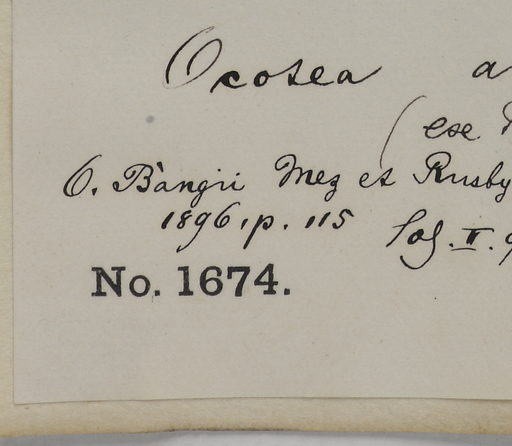 Ocotea a
(ese
O. Bangii Mez et Rusby
1896, p. 115
No. 1674.